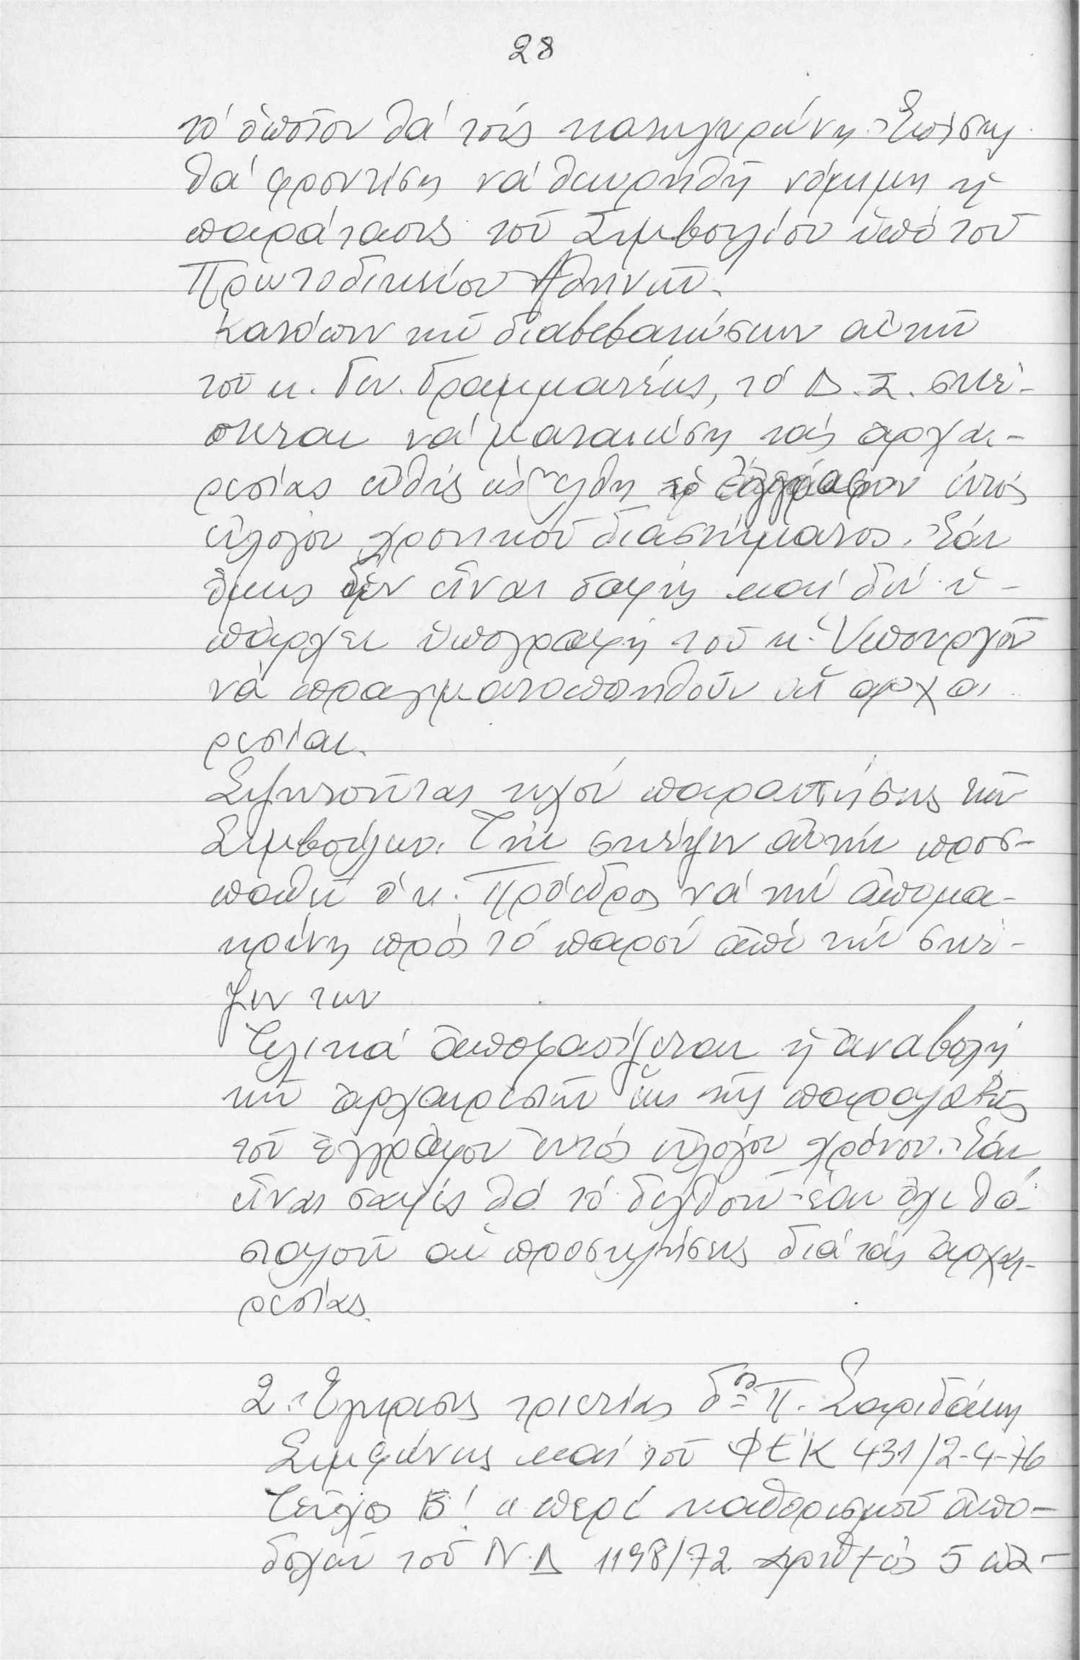 28
τό ὁποῖον θά τούς κατοχυρώνη. Ἐπίσης
θά φροντίση νά θεωρηθῆ νόμιμη ἡ
παράτασις τοῦ Συμβουλίου ὑπό τοῦ
Πρωτοδικείου Ἀθηνῶν.
Κατόπιν τῶν διαβεβαιώσεων αὐτῶν
τοῦ κ. Γεν. Γραμματέως, τό Δ.Σ. σκέ-
πτεται νά ματαιώση τάς ἀρχαι-
ρεσίας εὐθύς ὡς ἔλθη τό ἔγγραφον ἐντός
εὐλόγου χρονικοῦ διαστήματος. Ἐάν
ὅμως δέν εἶναι σαφής καί δέν ὑ-
πάρχει ὑπογραφή τοῦ κ. Ὑπουργοῦ
νά πραγματοποιηθοῦν αἱ ἀρχαι
ρεσίαι.
Συζητοῦνται παραιτήσεις τῶν
Συμβούλων. Τήν σκέψιν αὐτήν προσ-
παθεῖ ὁ κ. Πρόεδρος νά τήν ἀπομα-
κρύνη πρός τό παρόν ἀπό τήν σκέ-
ψιν των
Τελικά ἀποφασίζεται ἡ ἀναβολή
τῶν ἀρχαιρεσιῶν ἕως τῆς παραλαβῆς
τοῦ ἐγγράφου ἐντός εὐλόγου χρόνου. Ἐάν
εἶναι σαφές θά τό δεχθοῦν ἐάν ὄχι θά
σταλοῦν αἱ προσκλήσεις διά τάς ἀρχαι-
ρεσίας.
2. Ἔγκρισις τριετίας δος Π. Σαριδάκη
Συμφώνως καί τοῦ ΦΕΚ 431/2-4-76
Τεῦχος Β! περί καθορισμοῦ ἀπο-
δοχῶν τοῦ Ν.Δ 1198/72 ἀριθ 5